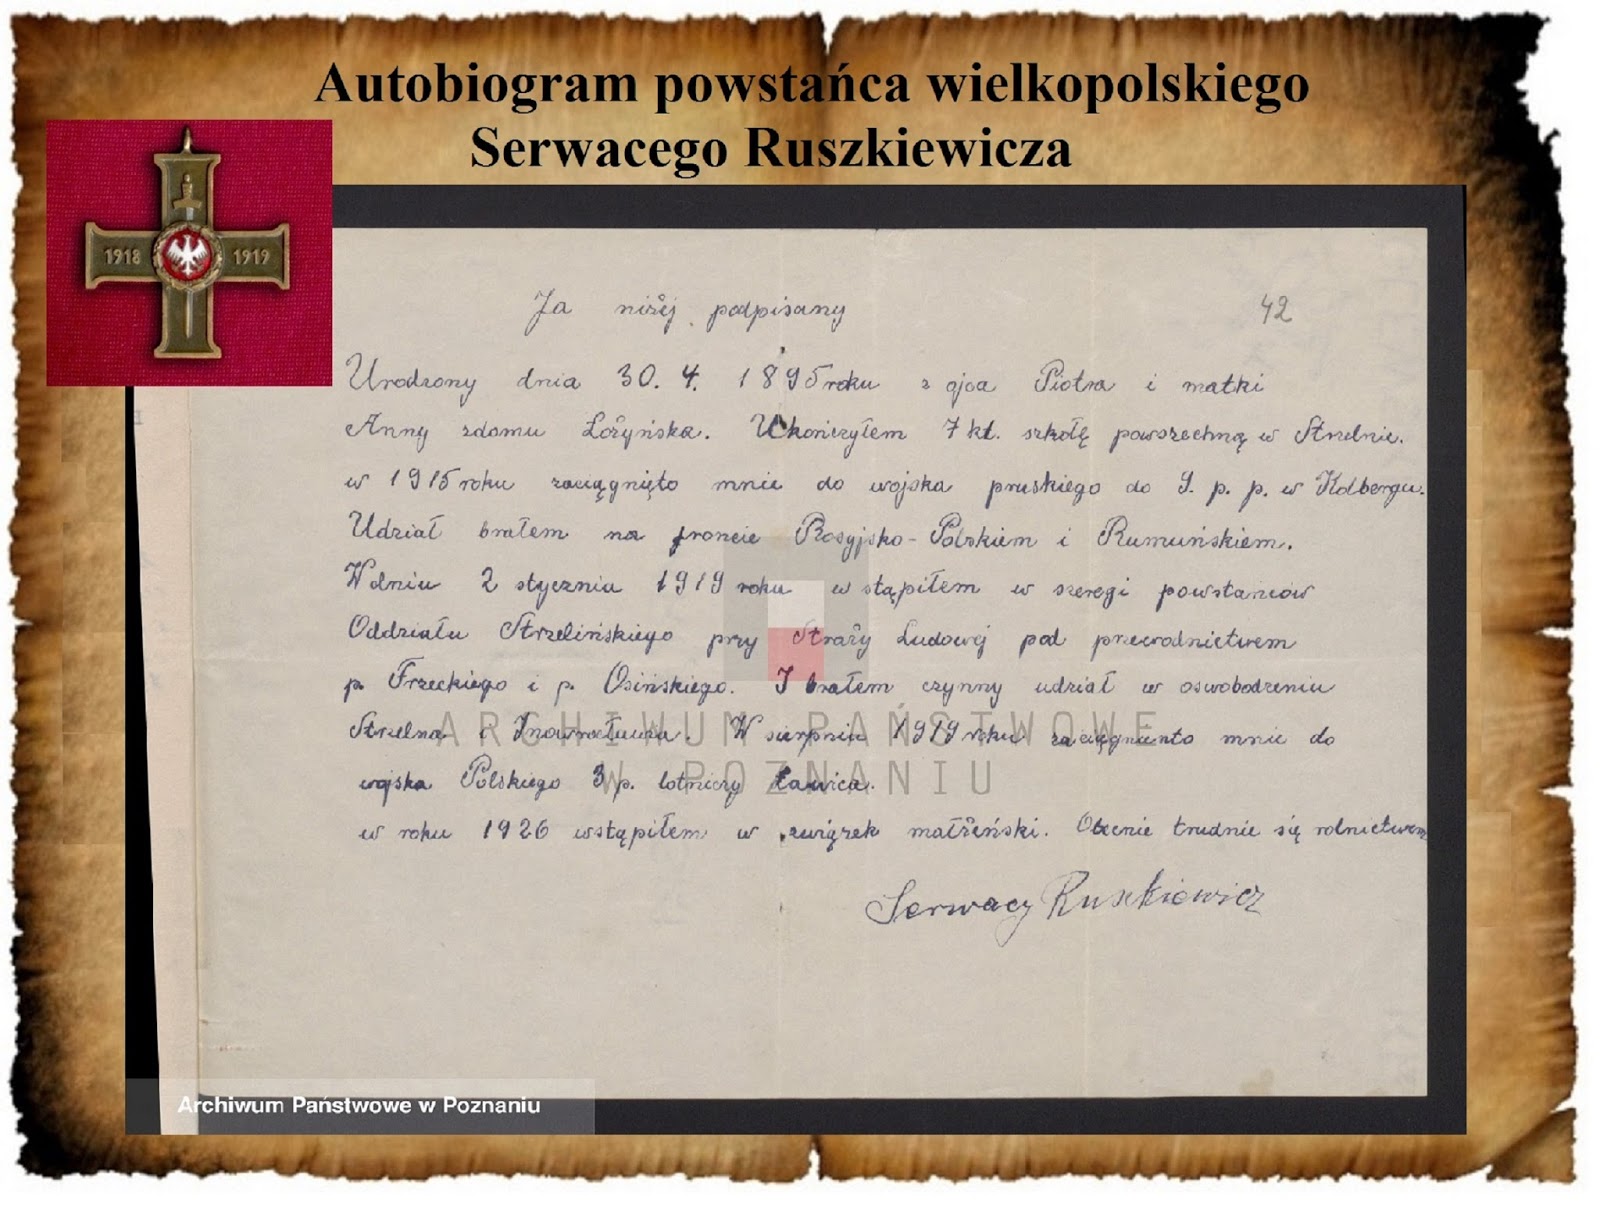 Autobiogram powstańca wielkopolskiego
Serwacego Ruszkiewicza
1918 1919
Ja niżej podpisany
42
Urodzony dnia 30. 4. 1895 roku z ojca Piotra i matki
Anny zdomu Łożyńska. Ukończyłem 7 kl. szkołę powszechną w Strzelnie.
w 1915 roku zaciągnięto mnie do wojska pruskiego do 9. p. p. w Kolbergu.
Udział brałem na froncie Rosyjsko-Polskiem i Rumuńskiem.
W dniu 2 stycznia 1919 roku wstąpiłem w szeregi powstańców
Oddziału Strzelińskiego przy Straży Ludowej pod przewodnictwem
p. Trzeckiego i p. Osińskiego. I brałem czynny udział w oswobodzeniu
Strzelna i Inowrocławia. W sierpniu 1919 roku zaciągnunto mnie do
wojska Polskiego 3 p. lotniczy Ławica.
w roku 1926 wstąpiłem w związek małżeński. Obecnie trudnie się rolnictwem
Serwacy Ruszkiewicz
ARCHIWUM PAŃSTWOWE
W POZNANIU
Archiwum Państwowe w Poznaniu